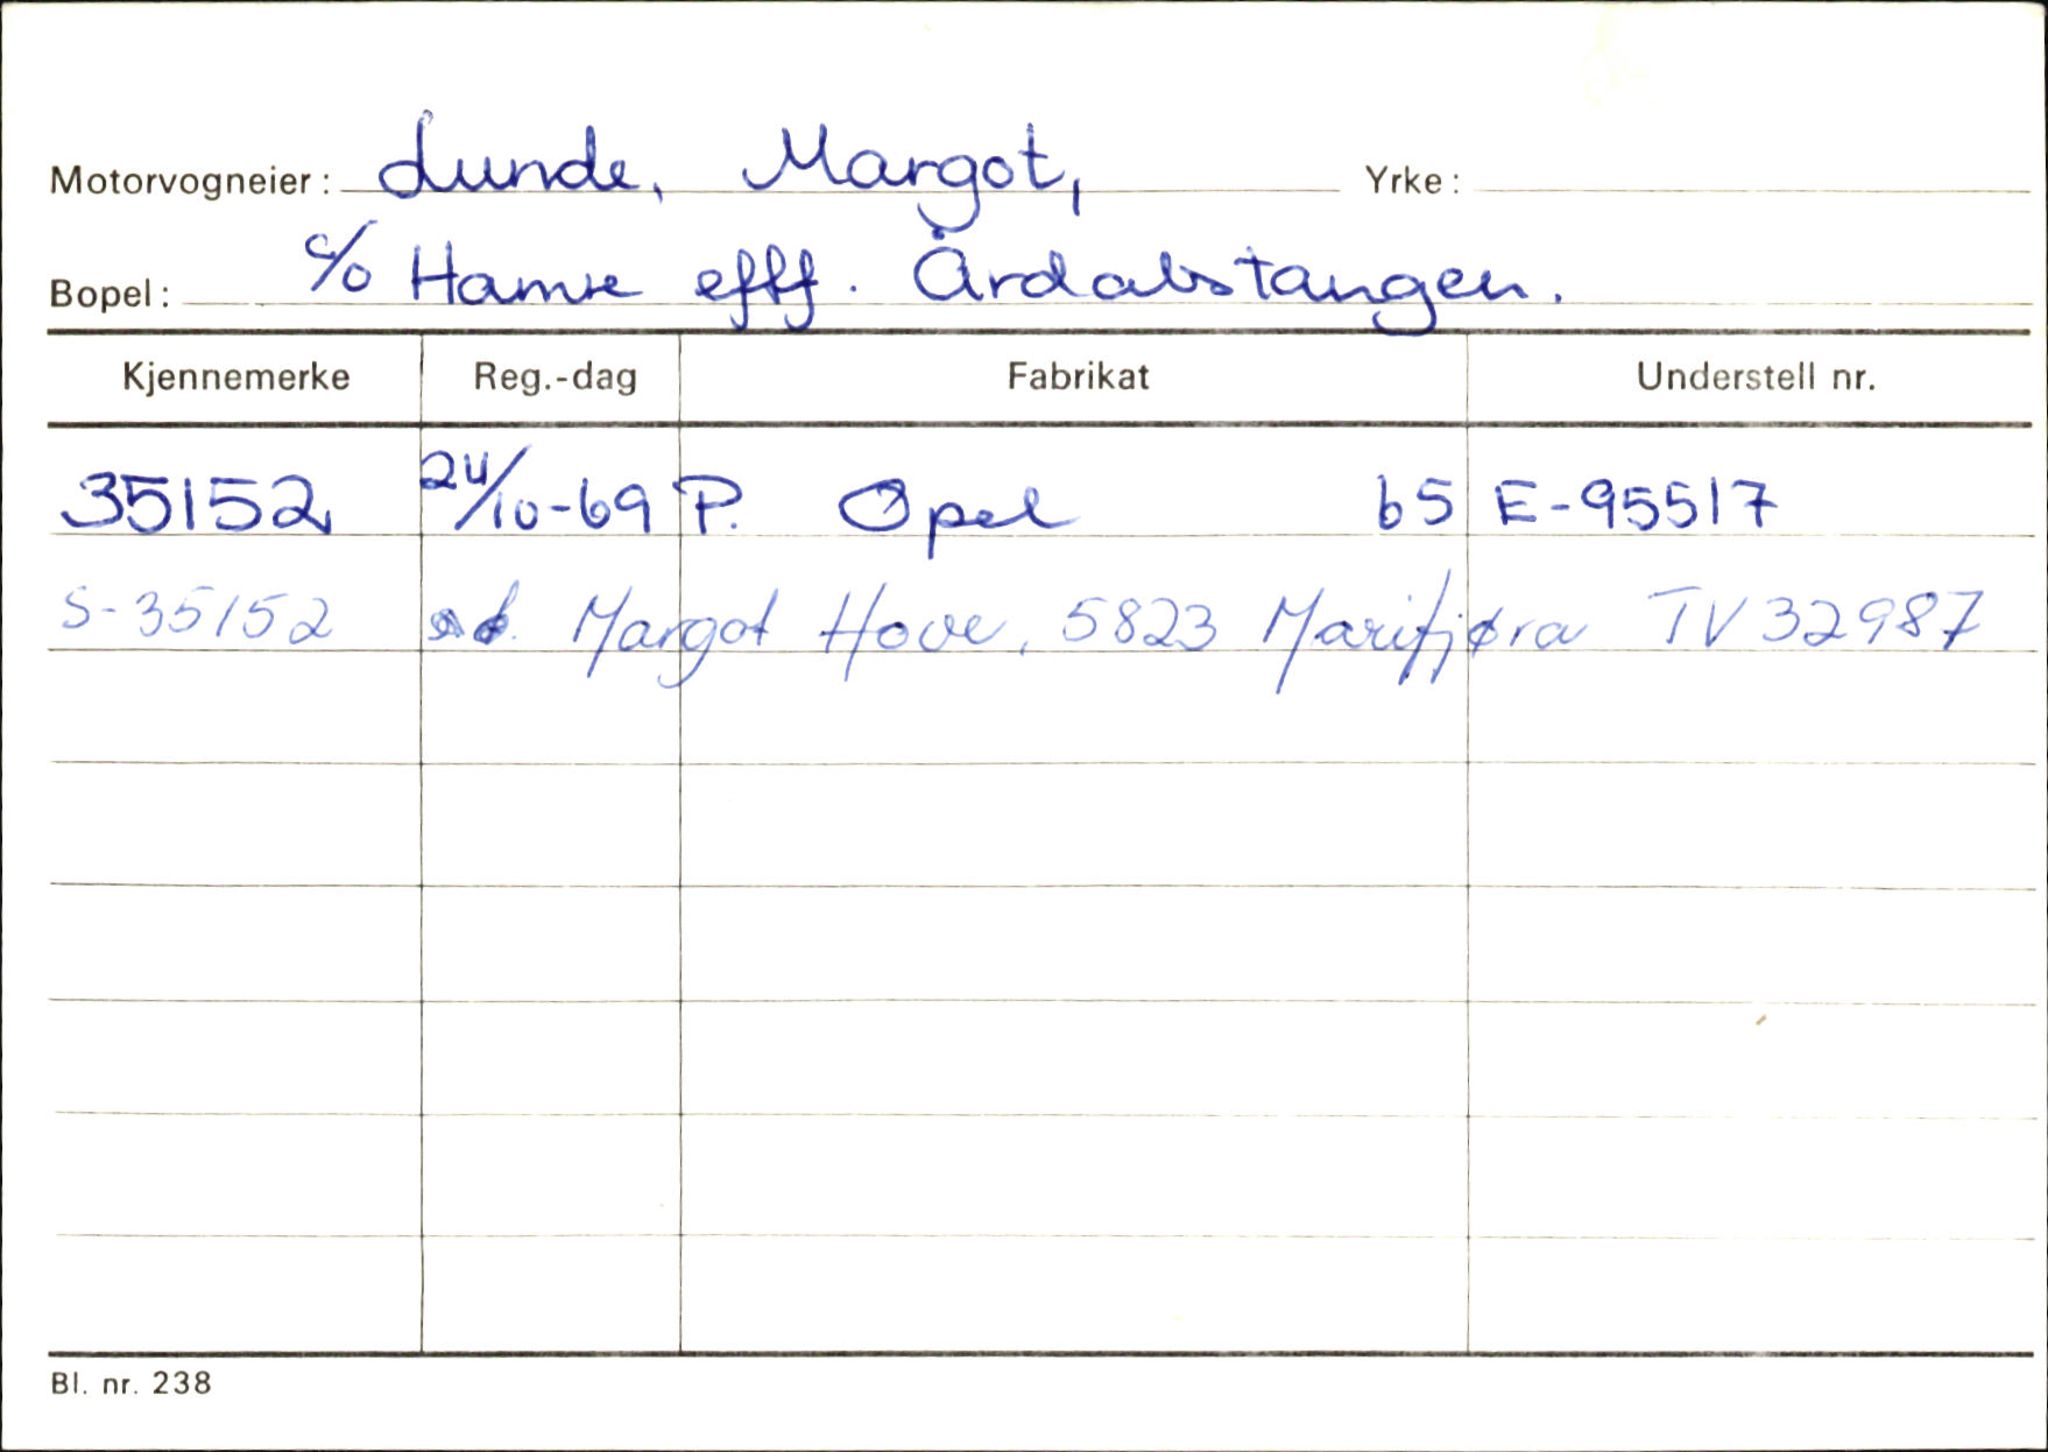 Motorvogneier: Lunde, Margot, Yrke:
Bopel: c/o Hamre eftf. Årdalstangen.
Kjennemerke Reg.-dag Fabrikat Understell nr.
35152 24/10-69 P. Opel 65 E-95517
S-35152 Margot Hove, 5823 Marifjøra TV32987
Bl. nr. 238